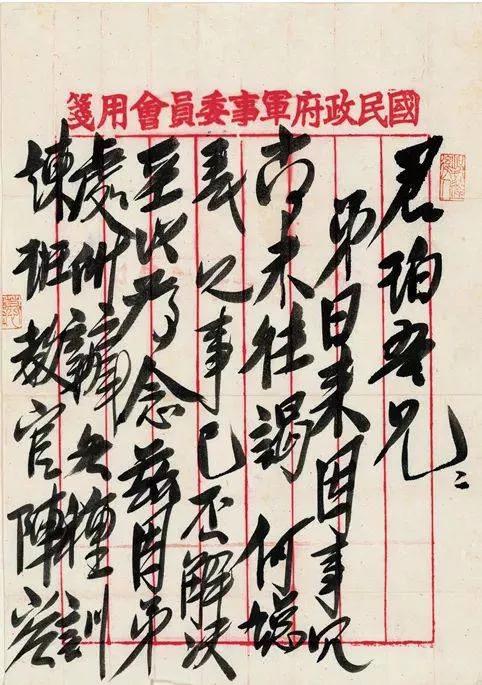 國民政府軍事委員會用箋
君珀吾兄：
弟日來因事冗
尚未往謁 何總
長之事已否解決
至以為念茲因弟
處所辦兵種訓
練班教官陣容